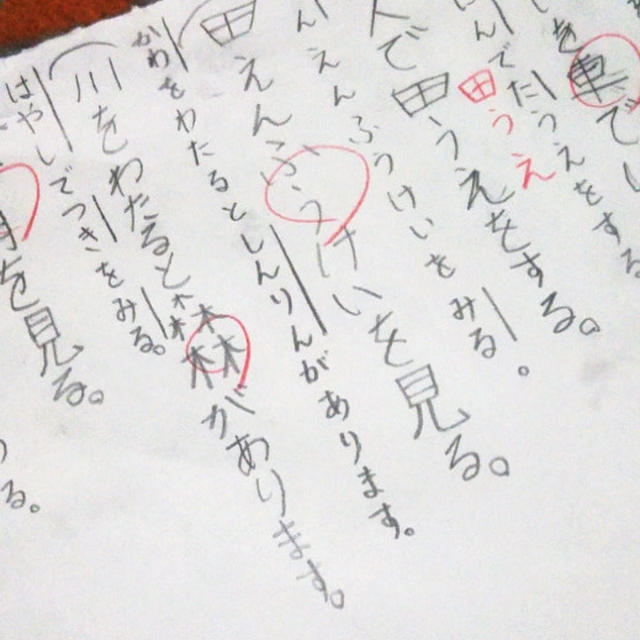 んでだうえをする
人で田うえをする。
田うえ
んえんふうけいをみる。
田えんふうけいを見る。
かわをわたるとしんりんがあります。
川をわたると森林があります。
はやしでつきをみる。
を見る。
る。